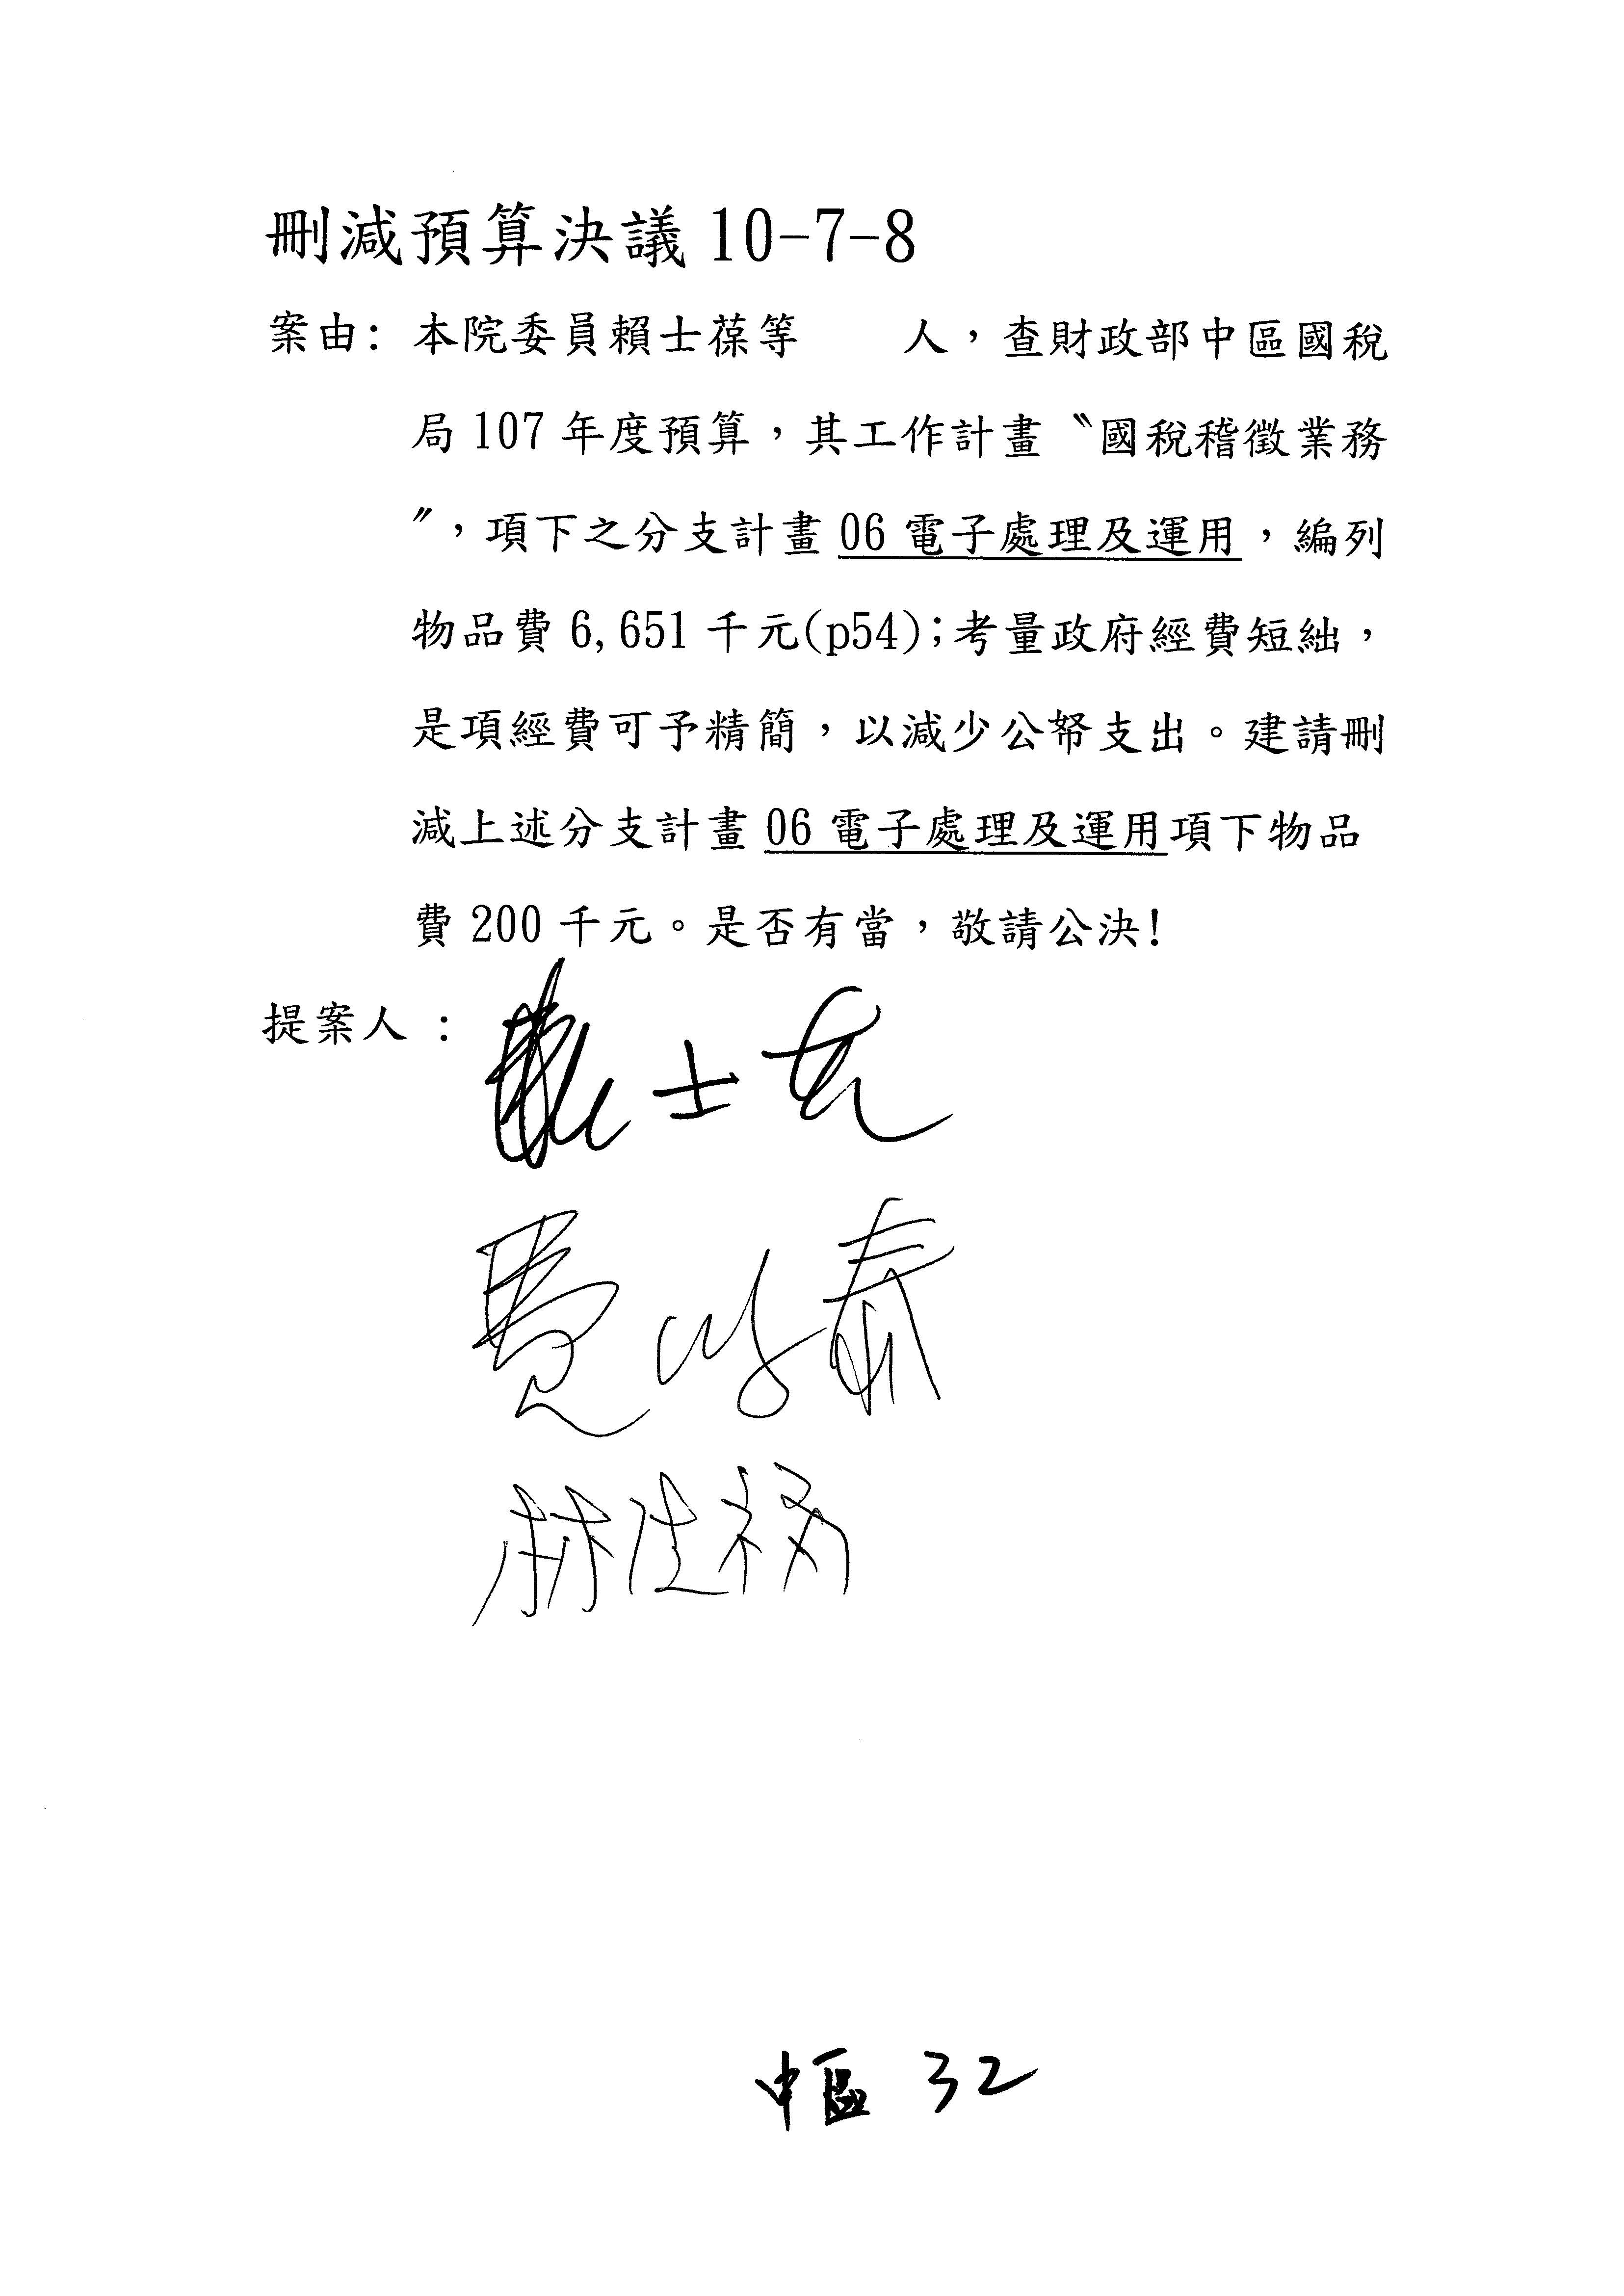 刪減預算決議10-7-8
案由: 本院委員賴士葆等　　人，查財政部中區國稅
局107年度預算，其工作計畫〝國稅稽徵業務
〞，項下之分支計畫06電子處理及運用，編列
物品費6,651千元(p54);考量政府經費短絀，
是項經費可予精簡，以減少公帑支出。建請刪
減上述分支計畫06電子處理及運用項下物品
費200千元。是否有當，敬請公決!
提案人 :
賴士葆
費鴻泰
中區 32